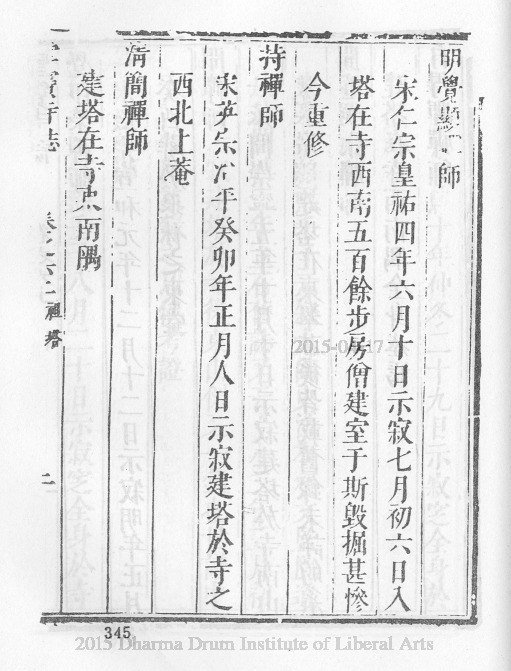 明覺顯師
宋仁宗皇祐四年六月十日示寂七月初六日入
塔在寺西南五百餘步房僧建室于斯毀掘甚慘
今重修
持禪師
宋英宗治平癸卯年正月人日示寂建塔於寺之
西北上菴
清簡禪師
建塔在寺東南隅
寺志
卷 祖塔
二
345
2015 Dharma Drum Institute of Liberal Arts